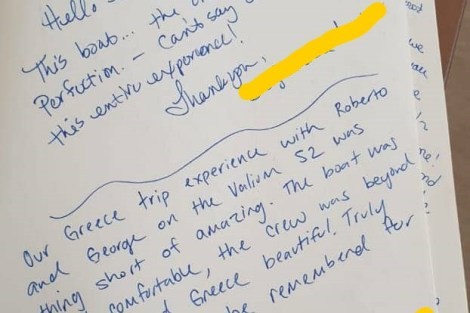 Hello
This boat... the
Perfection. - Can't say
this entire experience!
Thank you,
Our Greece trip experience with Roberto
and George on the Valium 52 was
thing short of amazing. The boat was
comfortable, the crew was beyond
Greece beautiful. Truly
be rememberd for
we